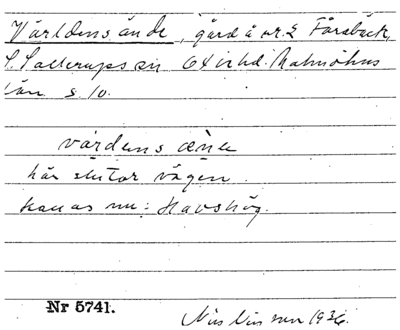 Världens ände, gård å nr 2 Fårabäck,
S. Sallerups sn Oxie hd. Malmöhus
län s. 10.
värdens ænә
här slutar vägen.
kallas nu: Havshög.
Nr 5741.
Nils Nilsson 1936.